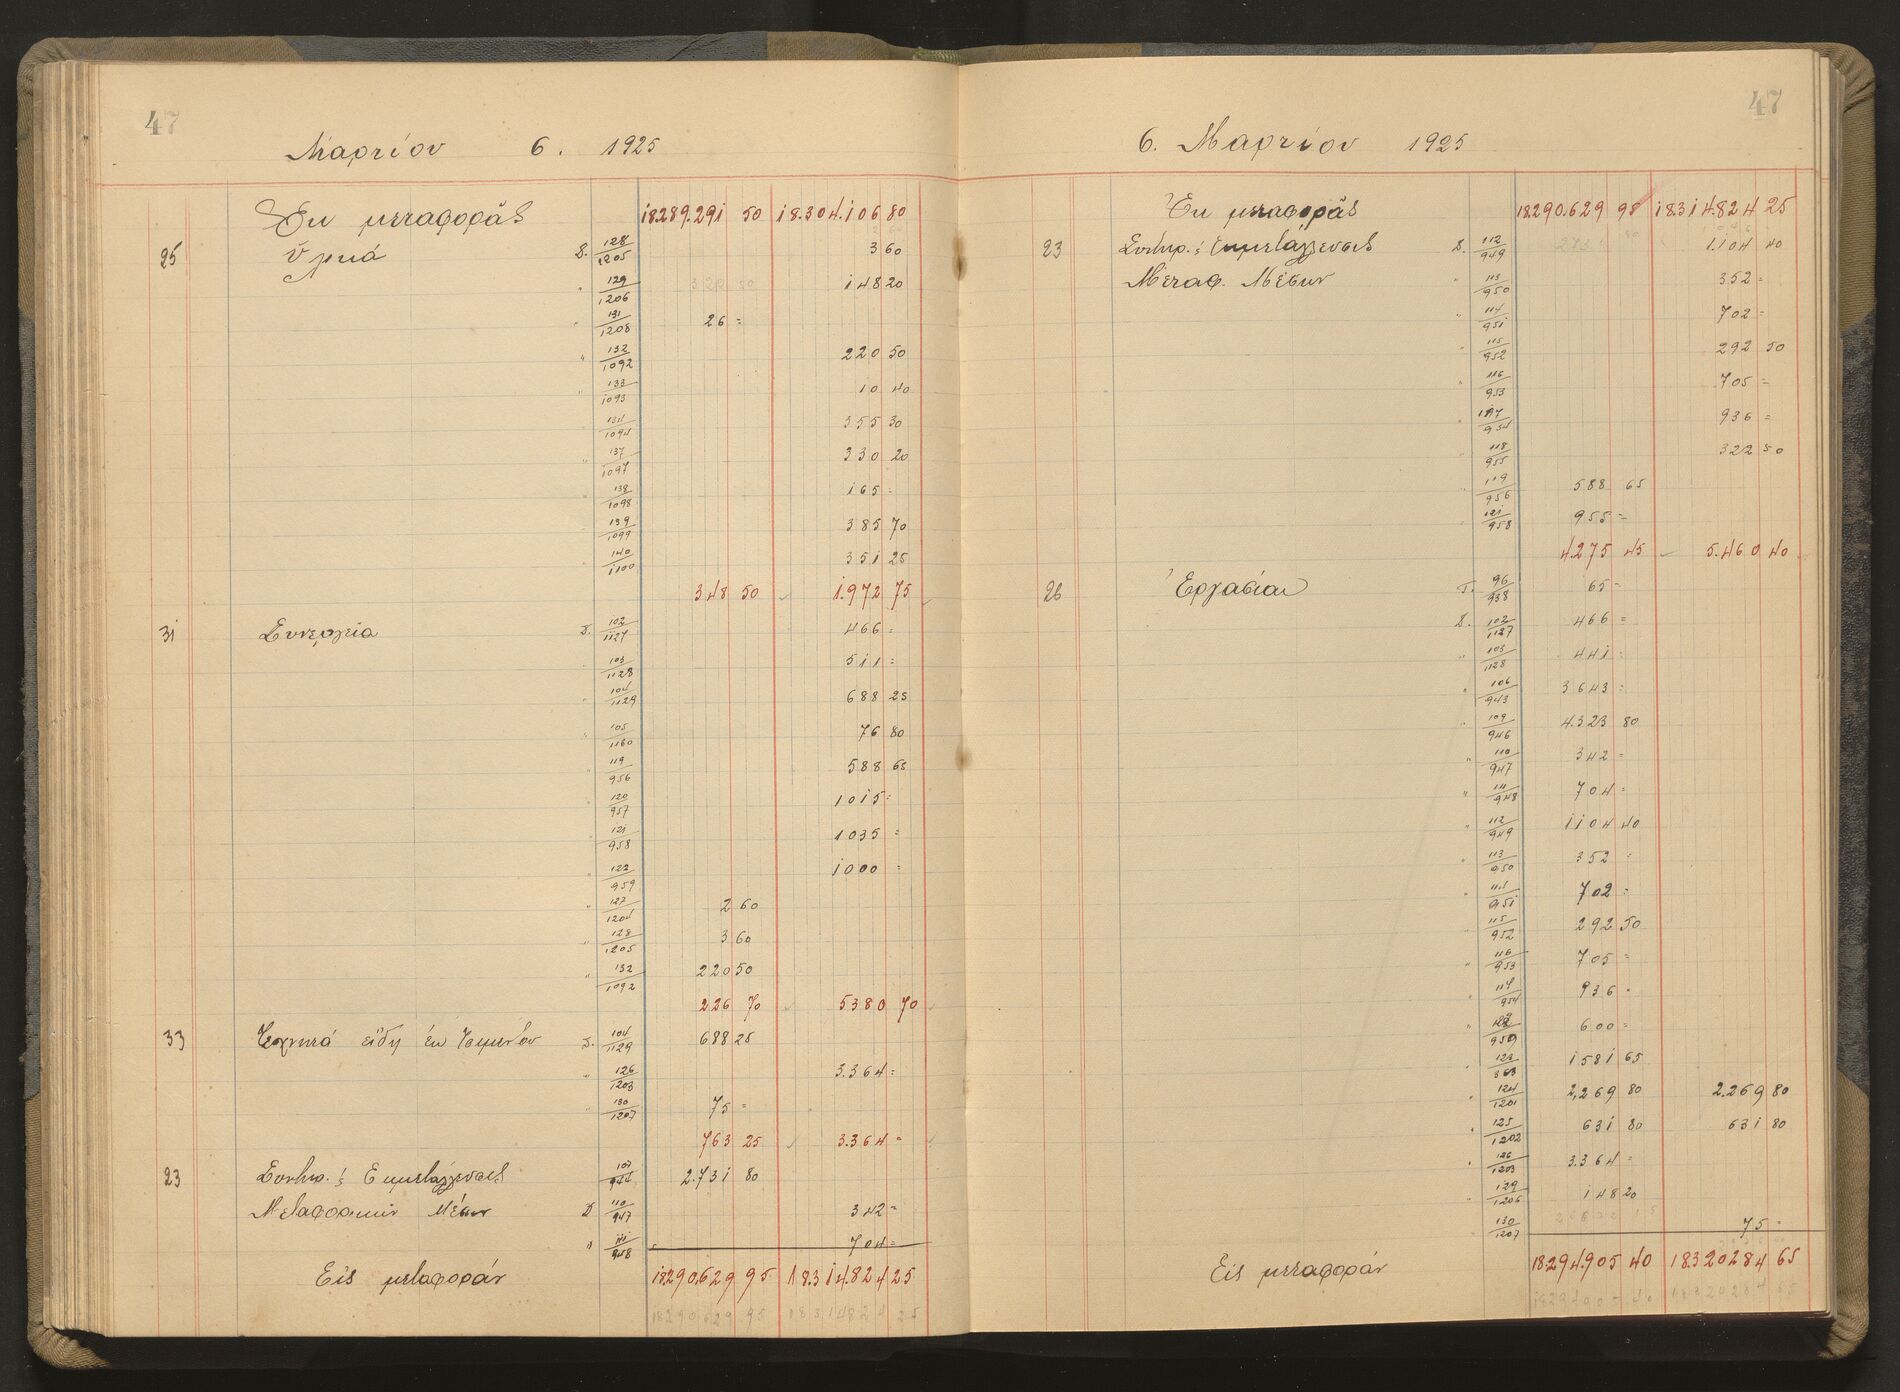 47
Μαρτίου 6. 1925
Ἐκ μεταφορᾶς 18.289.291 50 18.304.106 80
25 Ὑλικά Δ. 128/1205 3 60
" 129/1206 148 20
" 131/1208 26 =
" 132/1092 220 50
" 133/1093 10 40
134/1094 355 30
" 137/1097 330 20
" 138/1098 165 =
" 139/1099 385 70
140/1100 351 25
348 50 1.972 75
31 Συνεργεία Δ. 102/1127 466 =
103/1128 511 =
" 104/1129 688 25
" 105/1180 76 80
" 119/956 588 65
" 120/957 1015 =
" 121/958 1035 =
" 122/959 1000 =
" 127/1204 2 60
" 128/1205 3 60
" 132/1092 220 50
226 70 5380 70
33 Τεχνητά εἴδη ἐκ Τσιμέντου Δ. 104/1129 688 25
" 126/1203 3.364 =
" 130/1207 75 =
763 25 3.364 =
23 Συντηρ. & Ἐκμετάλλευσις 107/944 2.731 80
Μεταφορικῶν Μέσων Δ 110/947 342 =
" 111/948 704 =
Εἰς μεταφοράν 18290.629 95 18.314824 25
18290629 95 18314824 25
47
6. Μαρτίου 1925
Ἐκ μεταφορᾶς 18.290.629 95 18.314.824 25
23 Συντηρ. & Ἐκμετάλλευσις Δ. 112/949 1.104 40
Μεταφ. Μέσων " 113/950 352 =
" 114/951 702 =
" 115/952 292 50
" 116/953 705 =
" 117/954 936 =
" 118/955 322 50
" 119/956 588 65
121/958 955 =
4.275 45 5.460 40
26 Ἐργασίαι 96/938 65 =
Δ. 102/1127 466 =
" 103/1128 441 =
" 106/943 3643 =
" 109/946 4.323 80
" 110/947 342 =
" 111/948 704 =
" 112/949 1104 40
" 113/950 352 =
" 114/951 702 =
" 115/952 292 50
" 116/953 705 =
" 117/954 936 =
" 122/959 600 =
" 1581 65
" 124/1201 2,269 80 2.269 80
" 125/1202 631 80 631 80
" 126/1203 3.364 =
" 129/1206 148 20
" 130/1207 75 =
Εἰς μεταφοράν 18294.905 40 18320284 65
18320284 65